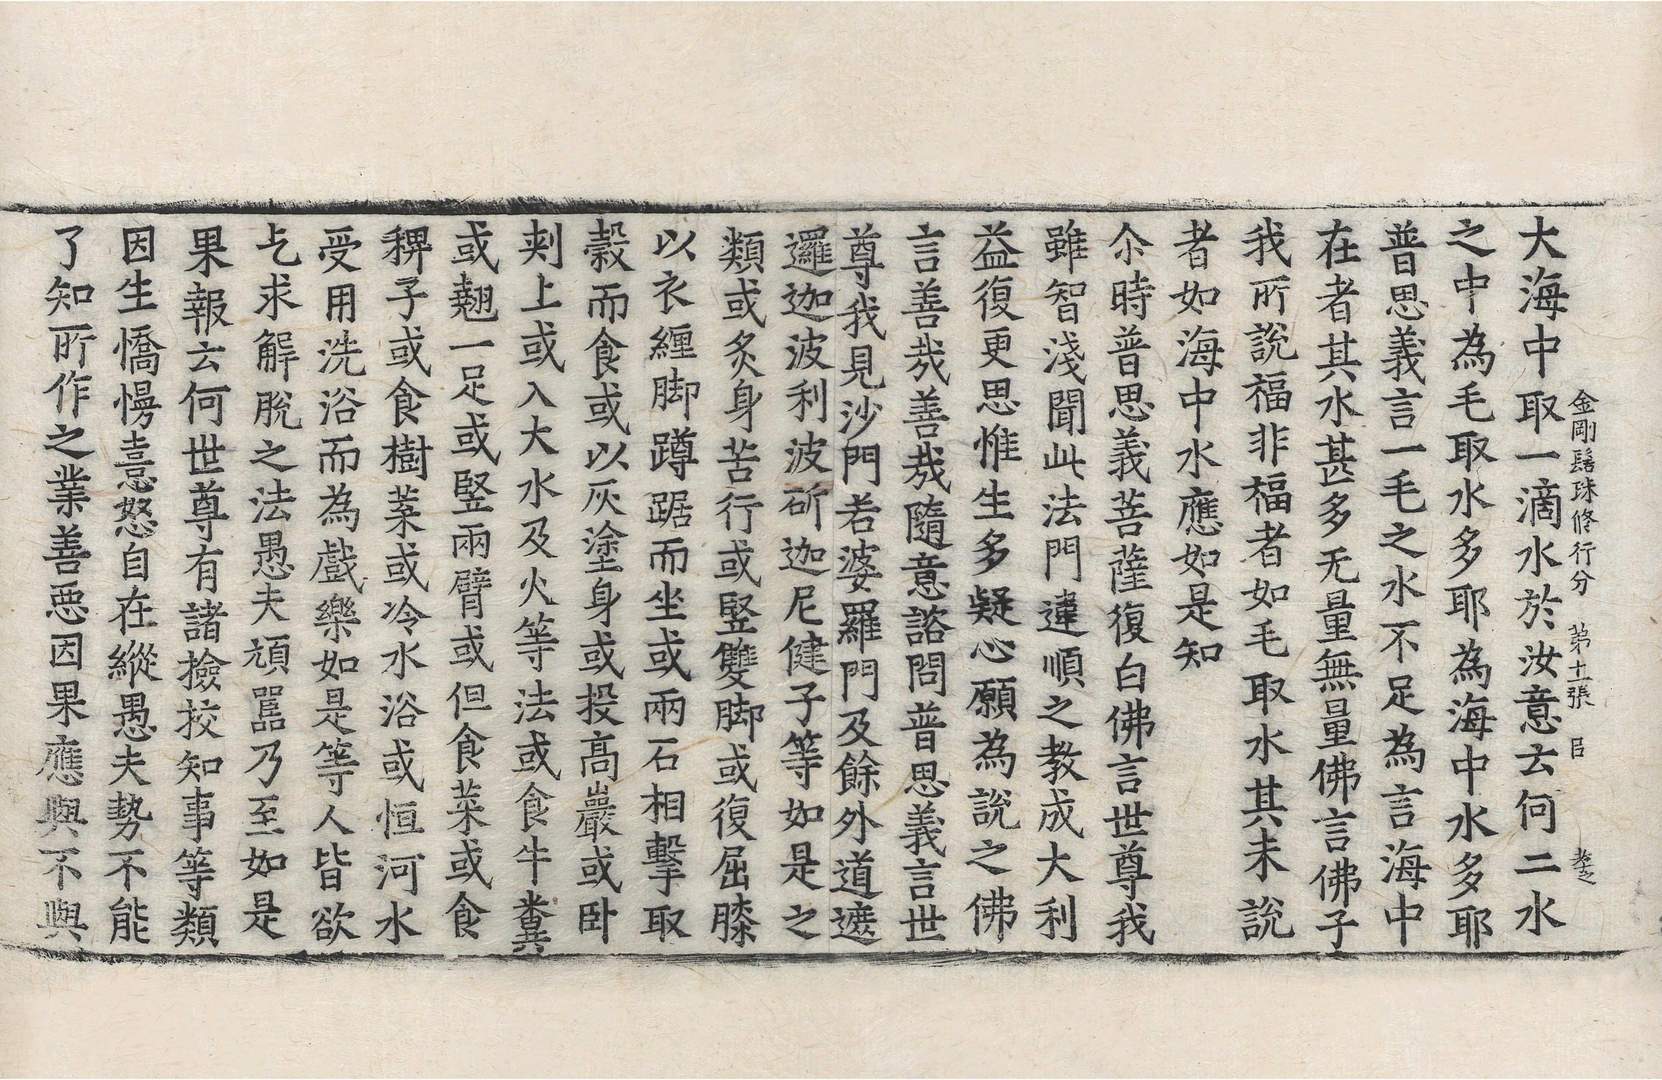 金剛髻珠修行分 第十二張 臣
大海中取一滴水於汝意云何二水
之中為毛取水多耶為海中水多耶
普思義言一毛之水不足為言海中
在者其水甚多无量無量佛言佛子
我所說福非福者如毛取水其未說
者如海中水應如是知
尒時普思義菩薩復白佛言世尊我
雖智淺聞此法門違順之教成大利
益復更思惟生多疑心願為說之佛
言善哉善哉隨意諮問普思義言世
尊我見沙門若婆羅門及餘外道遮
邏迦波利波斫迦尼健子等如是之
類或炙身苦行或竪雙脚或復屈膝
以衣纏脚蹲踞而坐或兩石相擊取
穀而食或以灰塗身或投高巖或卧
刺上或入大水及火等法或食牛糞
或翹一足或竪兩臂或但食菜或食
稗子或食樹葉或冷水浴或恒河水
受用洗浴而為戲樂如是等人皆欲
乞求解脫之法愚夫頑嚚乃至如是
果報云何世尊有諸撿挍知事等類
因生憍慢憙怒自在縱愚夫勢不能
了知所作之業善惡因果應與不與